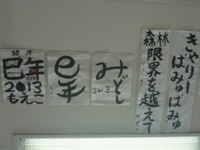 きゃりー
ぱみゅぱみゅ
森林
限界を越えて
みどし
2013
巳年
巳年
2013
もえ